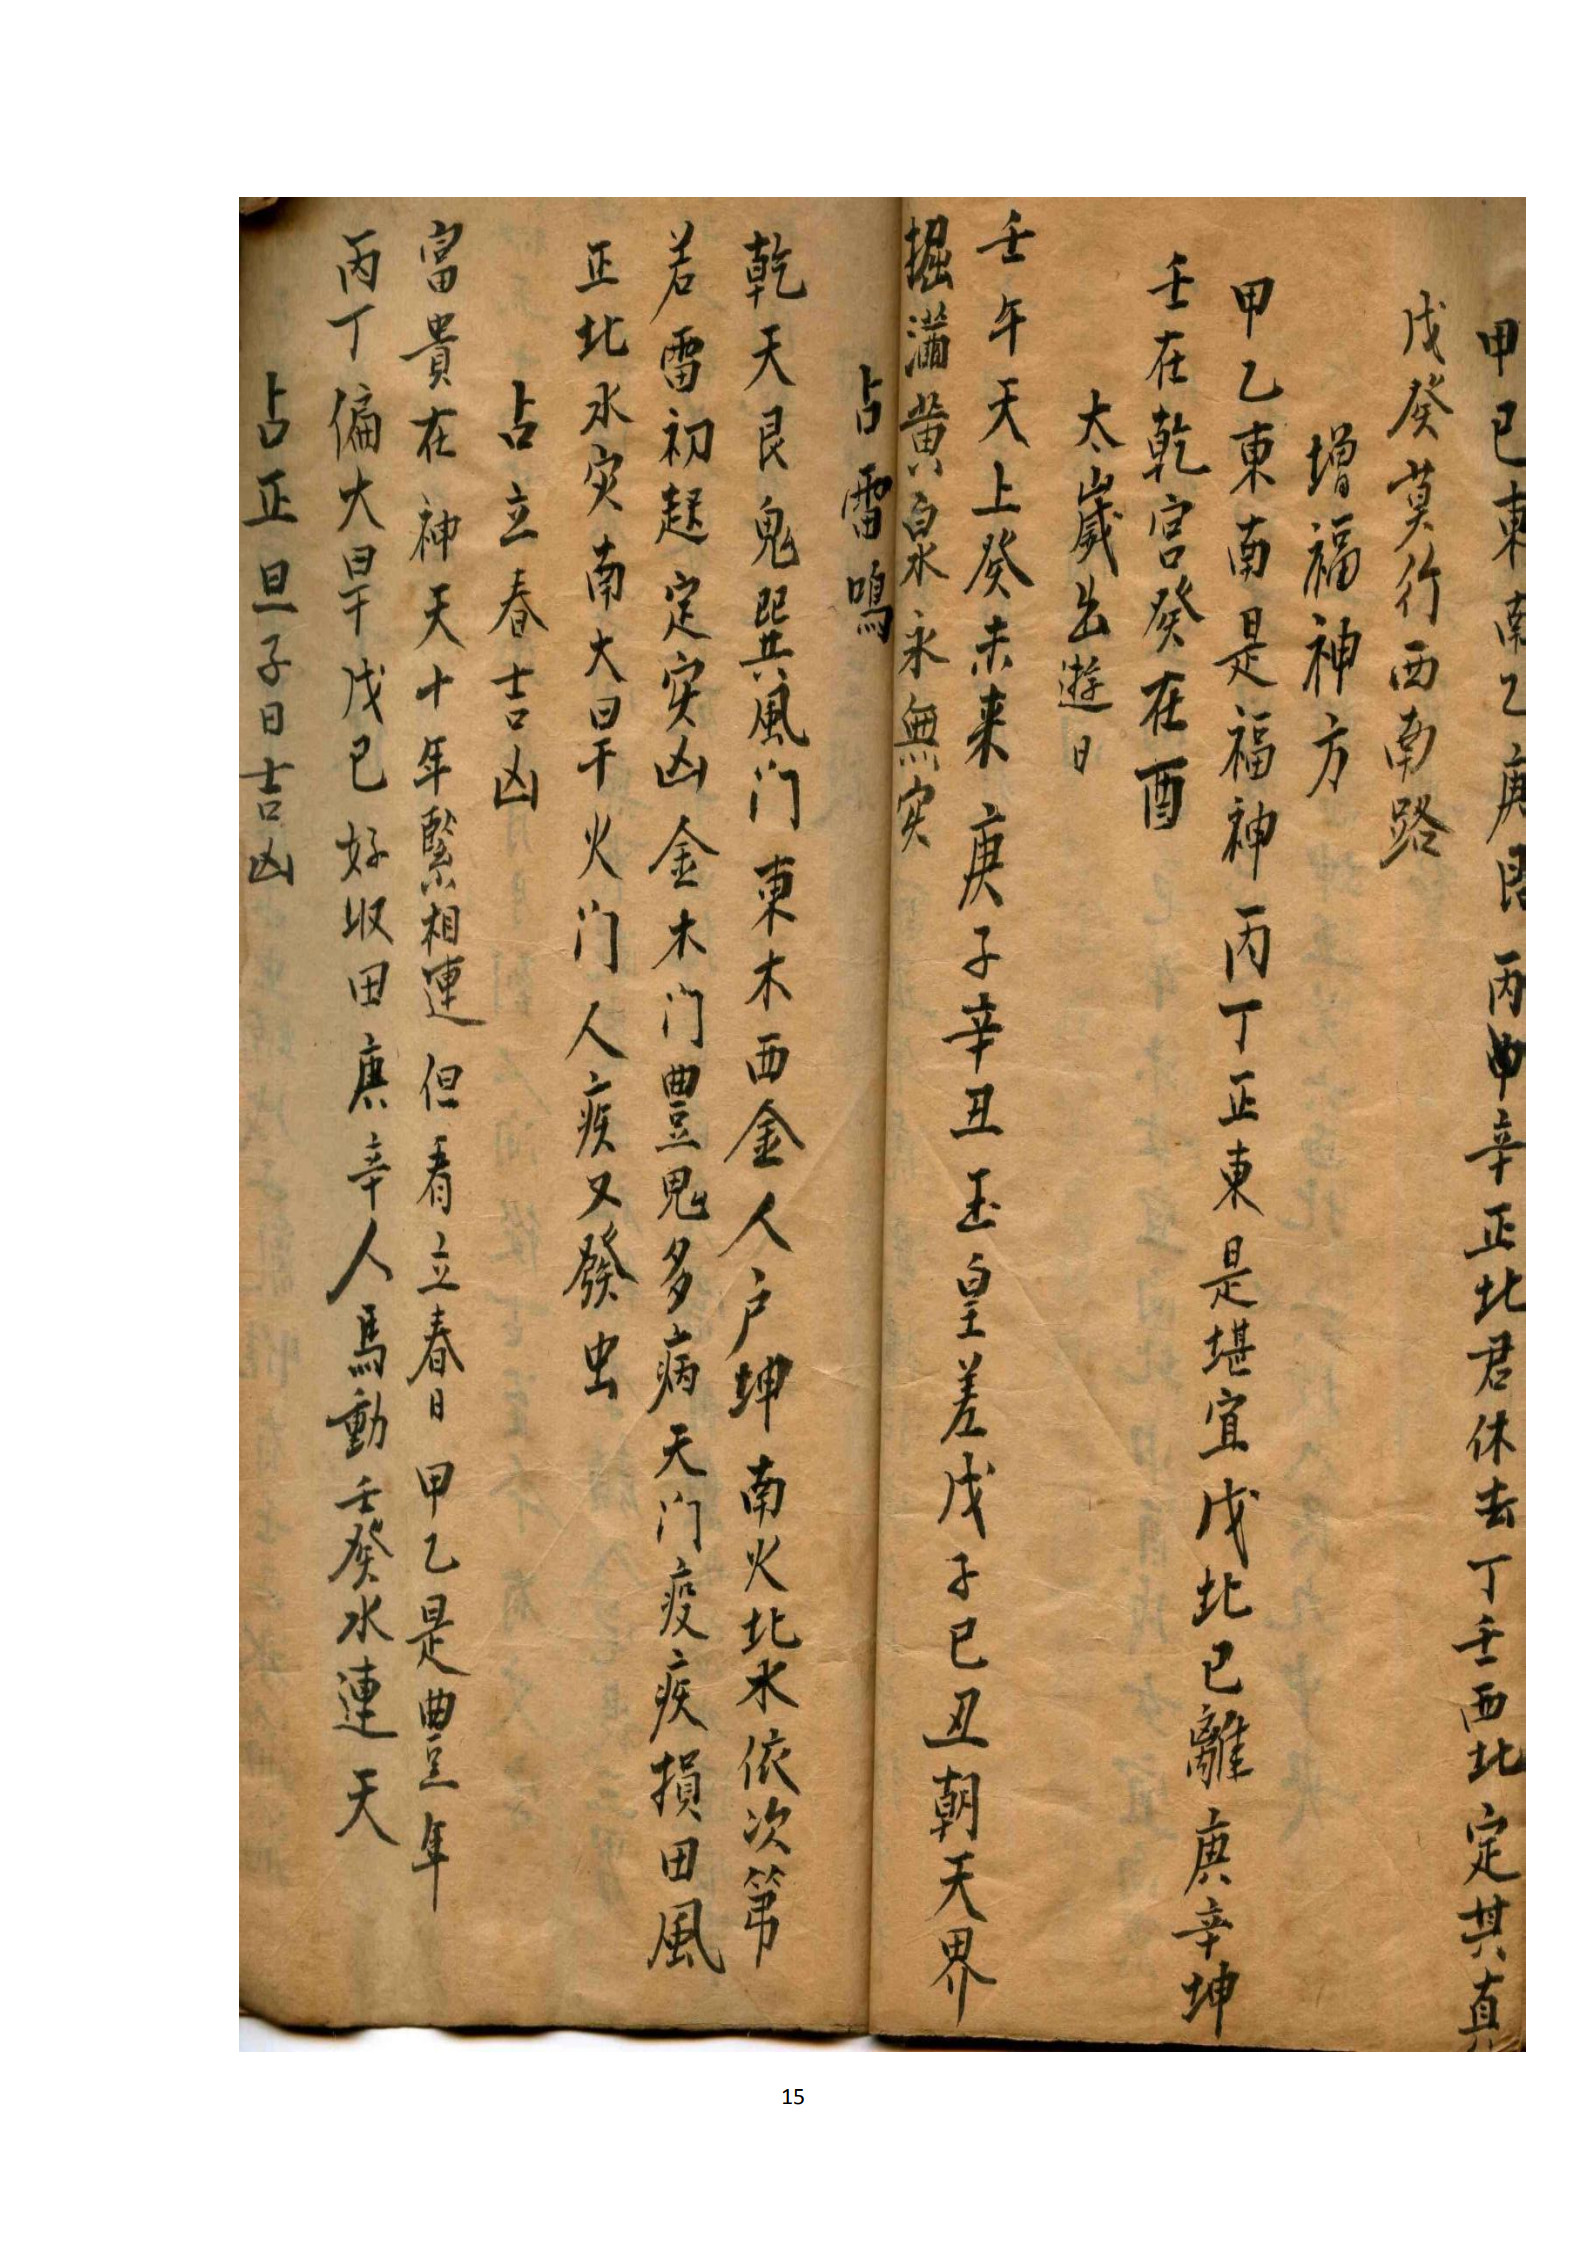 甲已東南乙庚艮 丙申辛正北君休去丁壬西北定其真
戊癸莫行西南路
增福神方
甲乙東南是福神丙丁正東是堪宜戊北已離庚辛坤
壬在乾宮癸在酉
太歲出遊日
壬午天上癸未来庚子辛丑玉皇差戊子已丑朝天界
掘溝黄泉永無灾
占雷鳴
乾天艮鬼巽風门東木西金人户坤南火北水依次第
若雷初起定灾凶金木门豊鬼多病天门疫疾損田風
正北水灾南大旱火门人疾又發虫
占立春吉凶
富貴在神天十年緊相連但看立春日甲乙是豊年
丙丁偏大旱戊已好收田庚辛人馬動壬癸水連天
占正旦子日吉凶
15